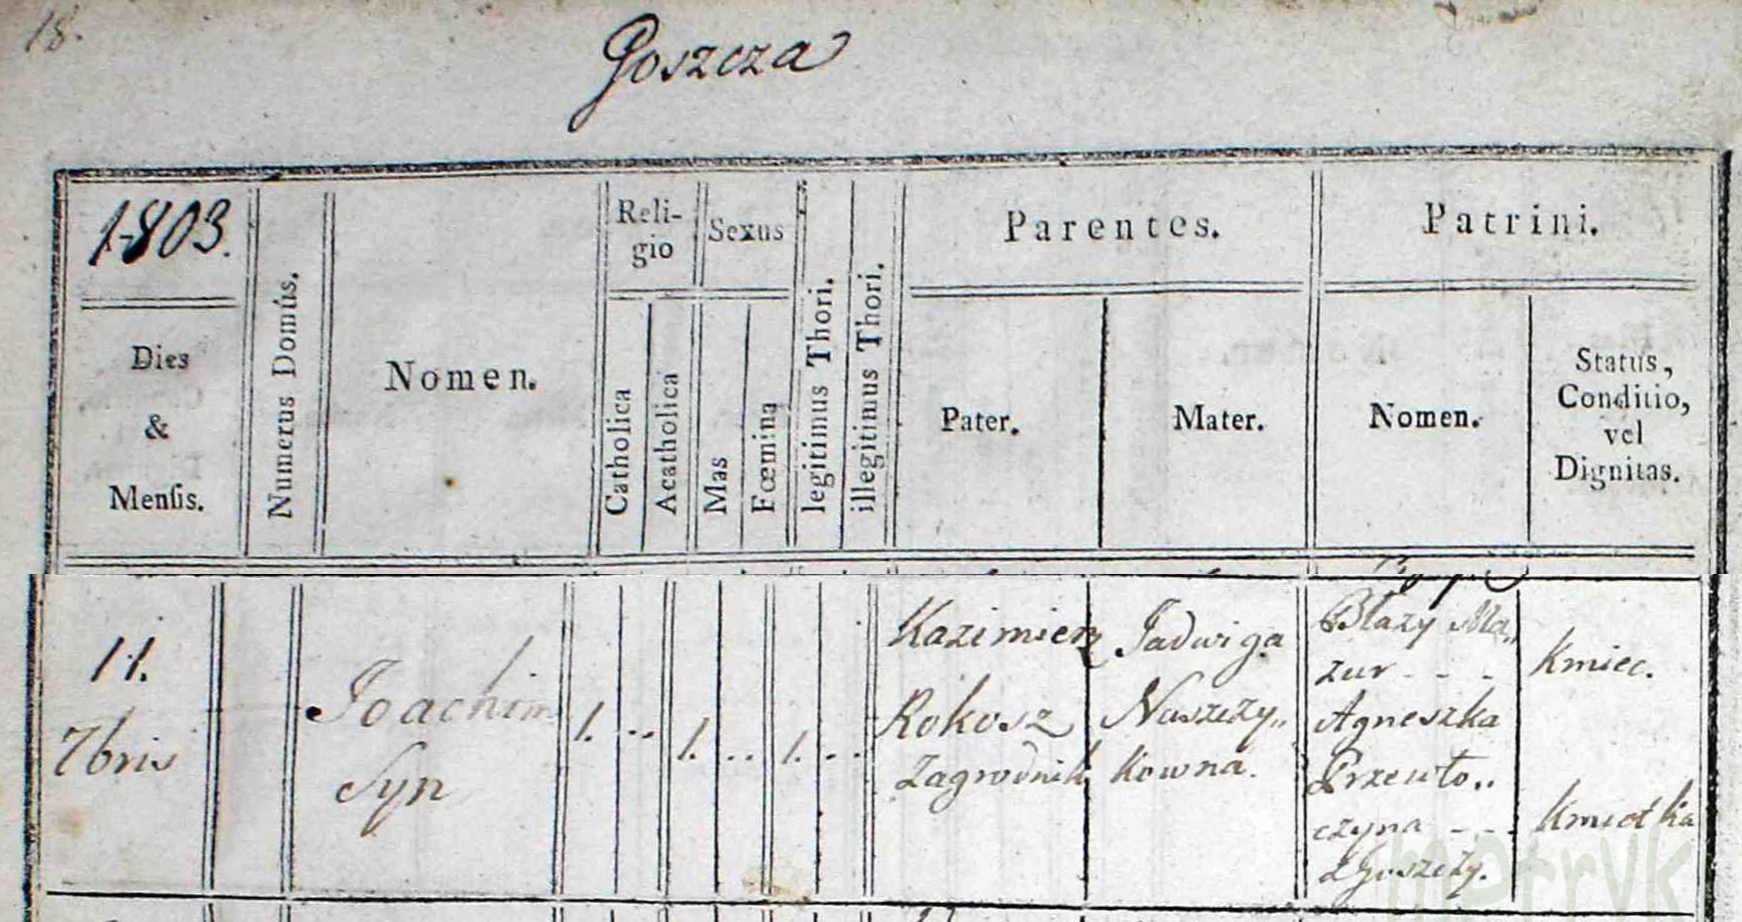 18.
Goszcza
1803.
Dies
&
Mensis.
Numerus Domûs.
Nomen.
Reli-
gio
Catholica
Acatholica
Sexus
Mas
Fœmina
legitimus Thori.
illegitimus Thori.
Parentes.
Pater.
Mater.
Patrini.
Nomen.
Status,
Conditio,
vel
Dignitas.
11.
7bris
Joachim
Syn
1. ..
1. ..
1. ..
Kazimierz
Rokosz
Zagrodnik
Jadwiga
Naszczy„
kowna.
Błazy Ma„
zur - - -
Agneszka
Przewło„
czyna - - -
z Goszczy.
Kmiec.
Kmiotka
metryk